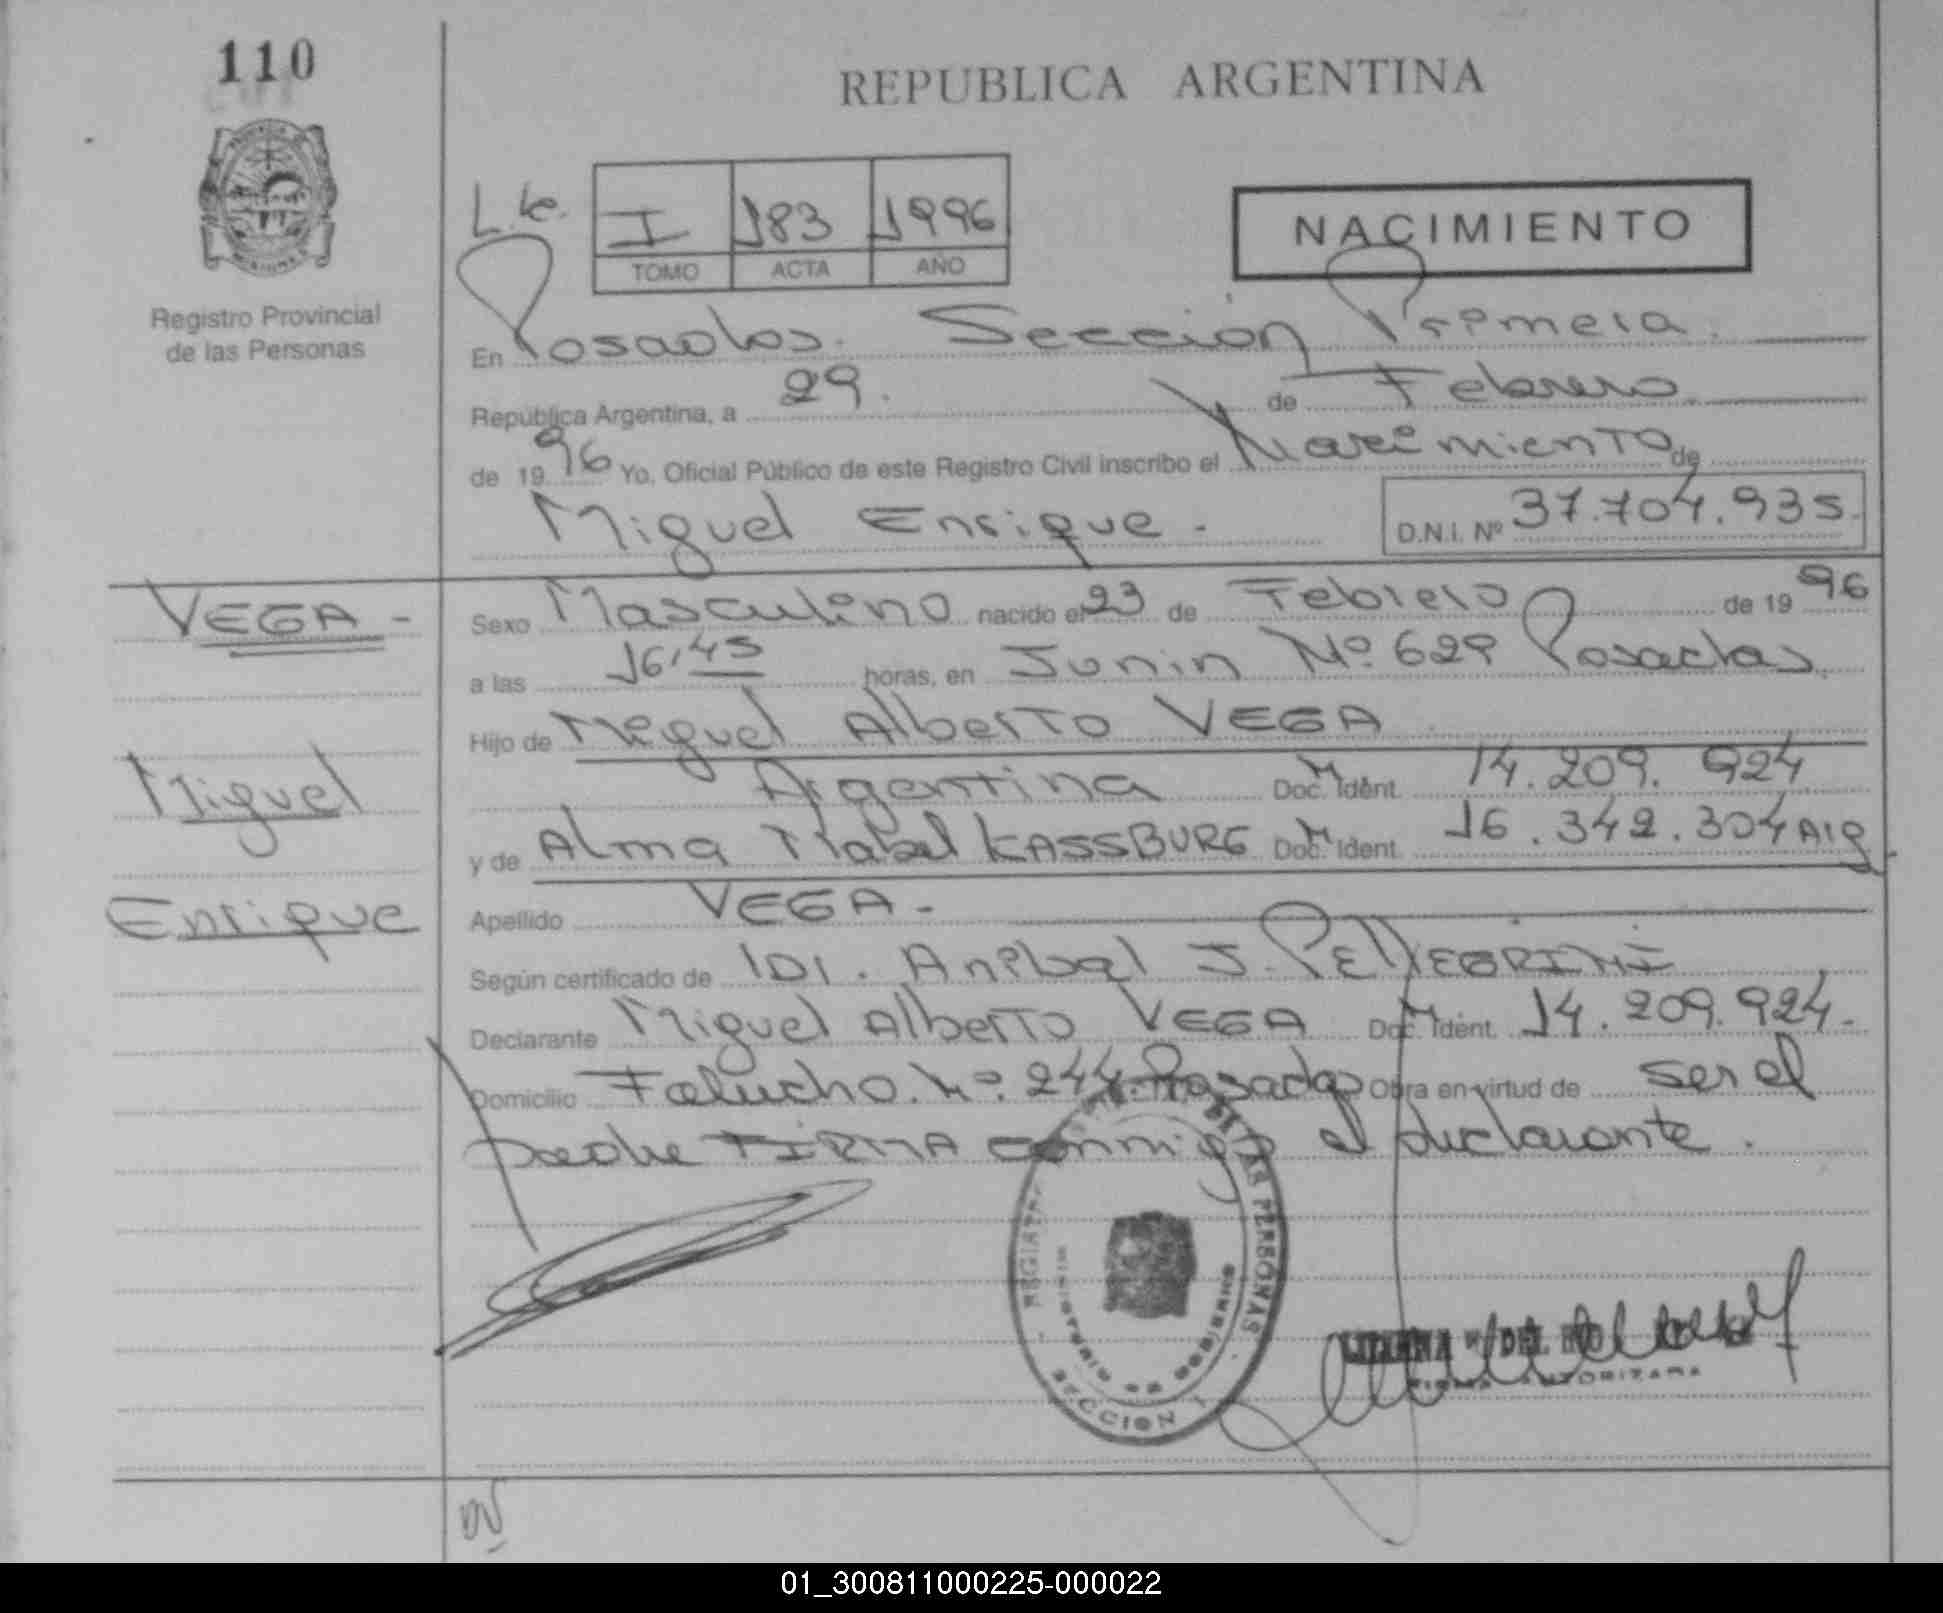 110
REPUBLICA ARGENTINA
Registro Provincial
de las Personas
I 183 1996
TOMO ACTA AÑO
NACIMIENTO
En Posadas. Sección Primera.
República Argentina, a 29. de Febrero
de 1996 Yo, Oficial Público de este Registro Civil inscribo el Nacimiento de
Miguel Enrique.- D.N.I. Nº 37.704.935.
VEGA-
Miguel
Enrique
Sexo Masculino nacido el 23 de Febrero de 1996
a las 16,45 horas, en Junin Nº 629 Posadas
Hijo de Miguel Alberto VEGA
Argentina Doc. Ident. 14.209.924
y de Alma Mabel KASSBURG Doc. Ident. 16.342.304 Arg
Apellido VEGA-
Según certificado de Dr. Anibal J. PELLEGRINI
Declarante Miguel Alberto VEGA Doc. Ident. 14.209.924.-
Domicilio Falucho Nº 244. Posadas Obra en virtud de ser el
padre FIRMA conmigo el declarante.
LAS PERSONAS
MINISTERIO DE GOBIERNO
SECCION 1
FIRMA AUTORIZADA
01_300811000225-000022